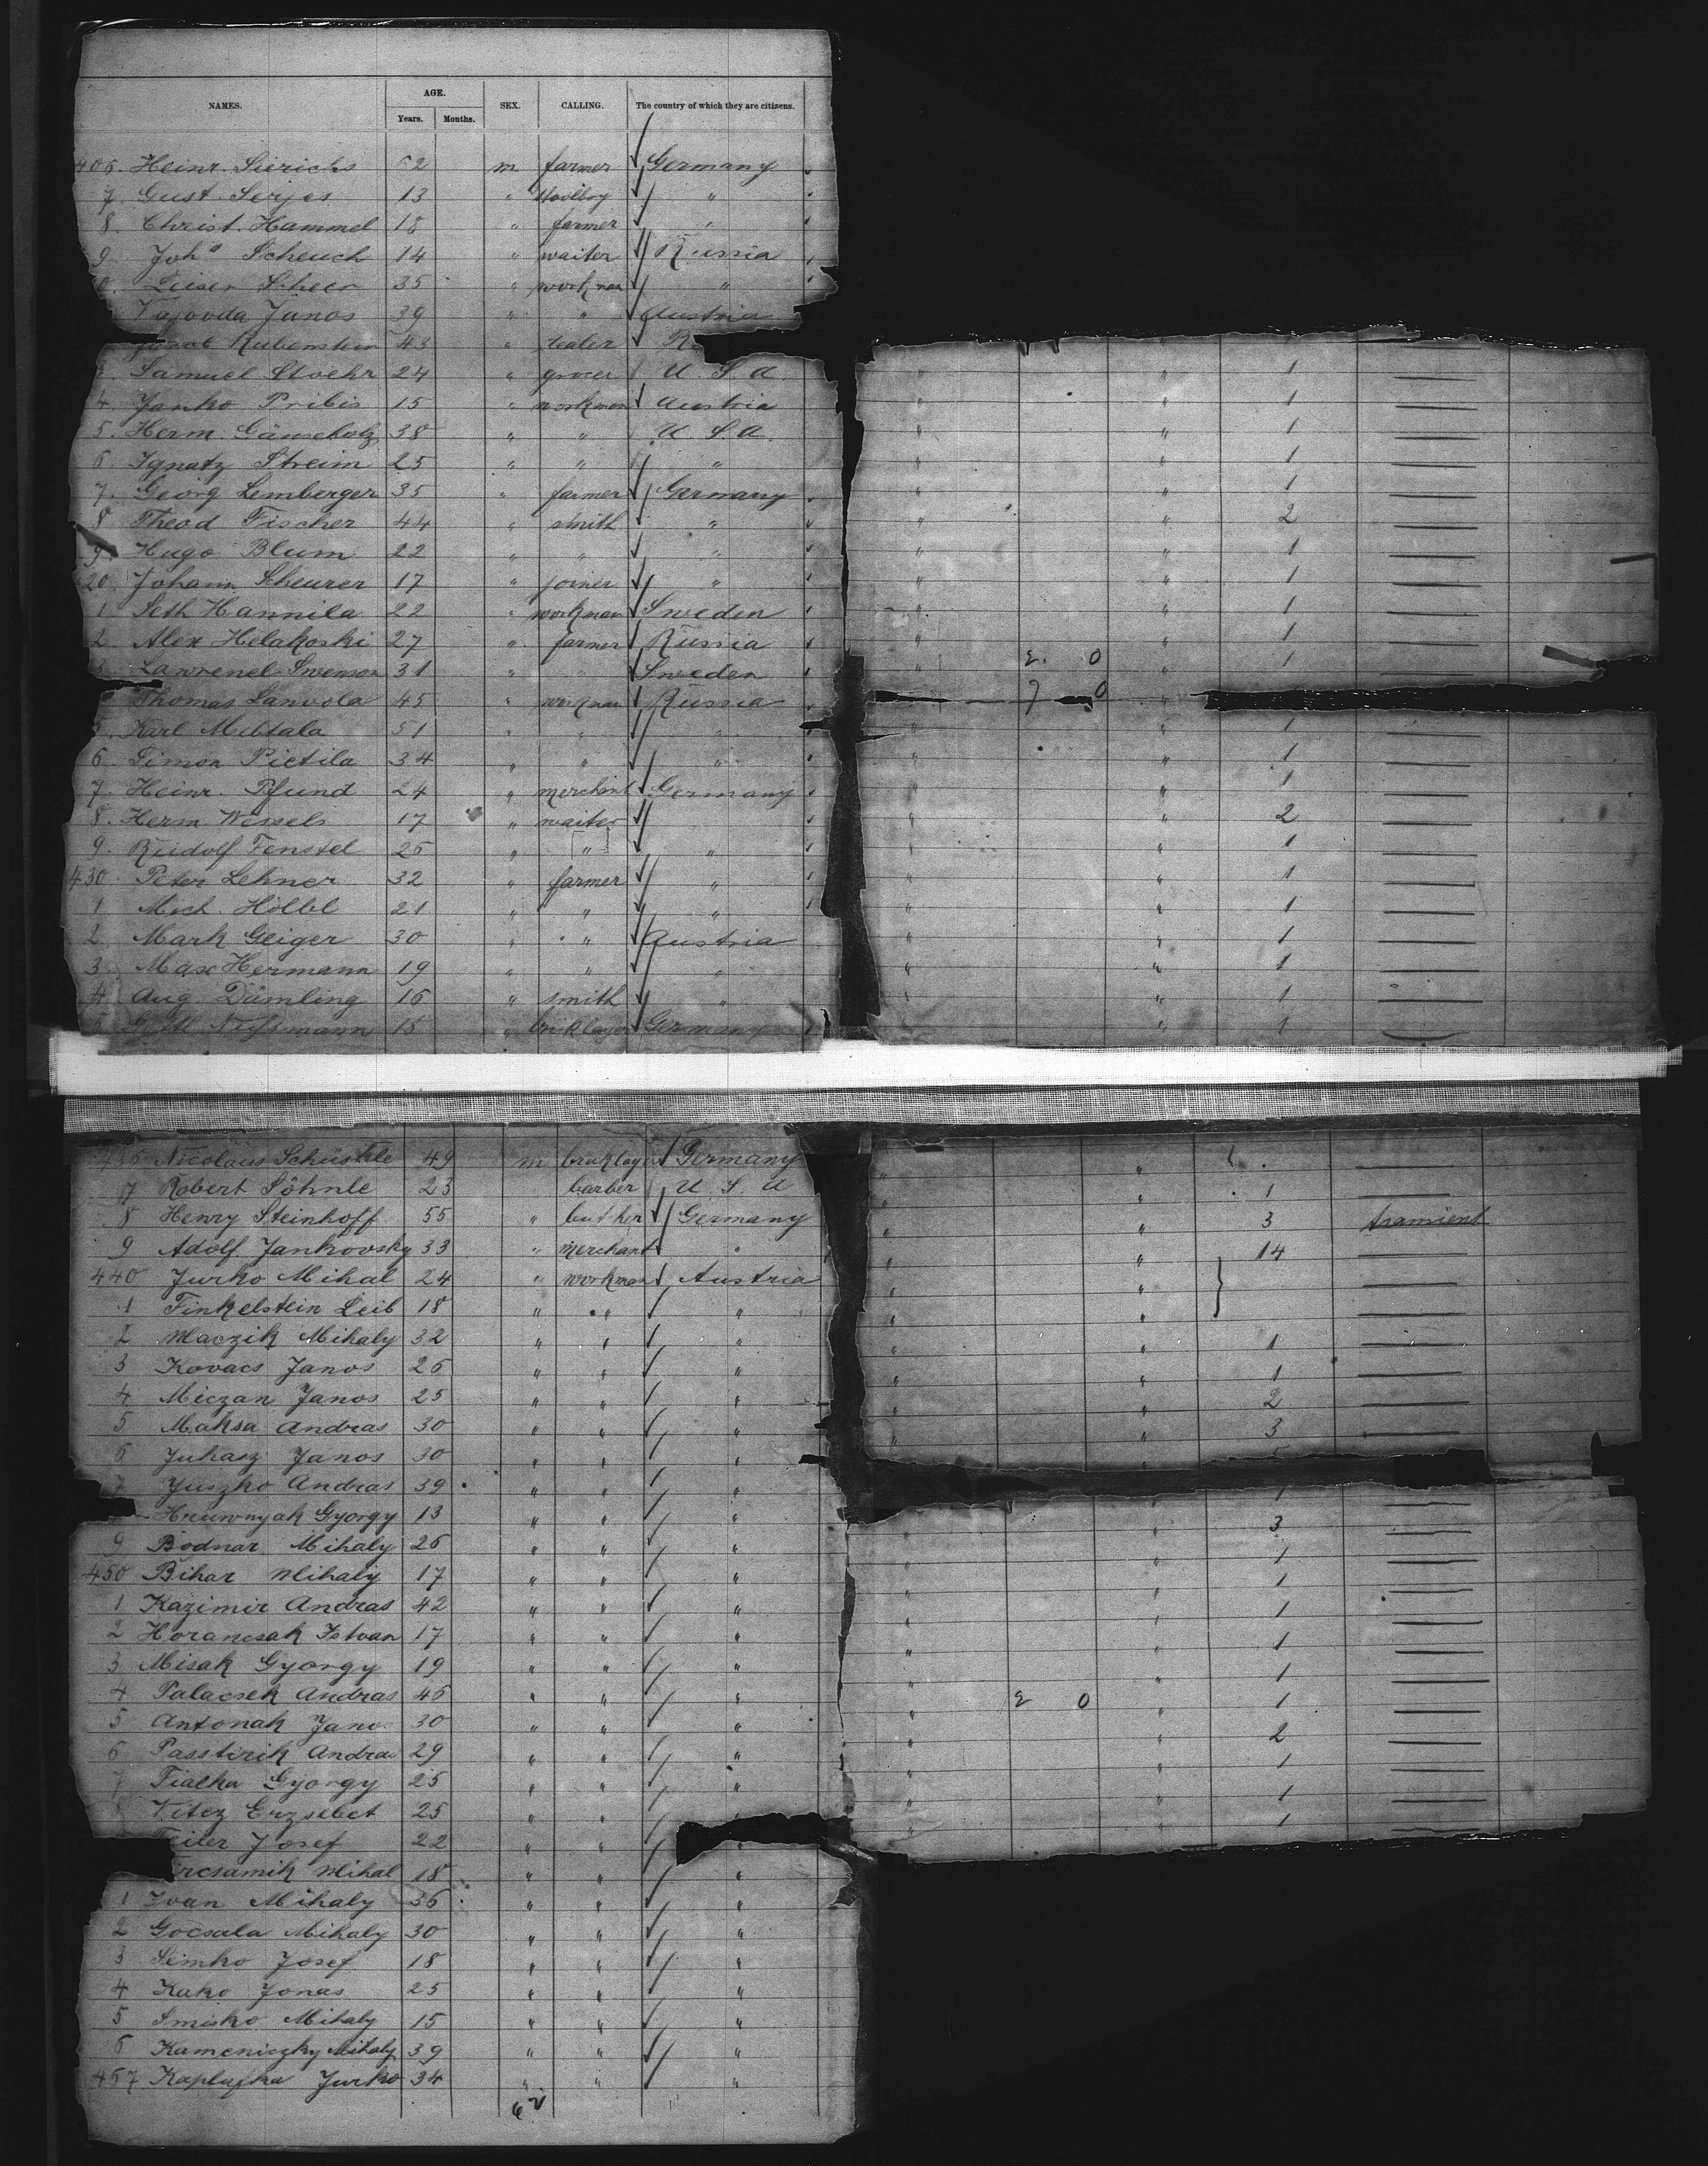 NAMES. AGE. SEX. CALLING. The country of which they are citizens.
Years. Months.
406. Heinr. Sierichs 62 m farmer Germany
7. Gust. Serjes 13 " "
8. Christ. Hammel 18 " farmer "
9. Joh. Scheuch 14 " waiter Russia
Leiser Scheer 35 " workman "
Janos 39 " " Austria
Rubenstein 43 " R
Samuel Stoehr 24 " grocer U. S. A. " " 1
4. Janko Pribis 15 " workman Austria " " 1
5. Herm. 38 " " U. S. A. " " 1
6. Ignatz Streim 25 " " " " " 1
7. Georg Lemberger 35 " farmer Germany " " 1
8 Theod Fischer 44 " smith " " " 2
9 Hugo Blum 22 " " " " " 1
20. Johann Scheurer 17 " joiner " " " 1
1. Seth Hannila 22 " workman Sweden " " 1
2. Alex Helakoski 27 " farmer Russia " " 1
3. Swenson 31 " " Sweden " 2. 0 " 1
Thomas Lanvola 45 " workman Russia 7 0 "
5. Karl 51 " " " " " 1
6. Simon Pietila 34 " " " " " 1
7. Heinr. Pfund 24 " merchant Germany " " 1
8. Herm Wessels 17 " waiter " " 2
9. Rudolf Fenstel 26 " " " " " 1
430. Peter Lehner 32 " farmer " " " 1
1 Mich. Hölbl 21 " " " " " 1
2. Mark Geiger 30 " " Austria " " 1
3. Max Hermann 19 " " " " " 1
4 Aug. Dämling 16 " smith " " " 1
5 Nussmann 18 " bricklayer Germany " 1
436 Nicolaus 49 m Germany " "
7 Robert Söhnle 23 barber U. S. A " " 1
8 Henry Steinhoff 55 " butcher Germany " " 3 transient
9 Adolf Jankovsky 33 " merchant " " " 14
440 Jurko Mihal 24 " workman Austria " "
1 Finkelstein Leib 18 " " " " "
2 Maczik Mihaly 32 " " " " " 1
3 Kovacs Janos 26 " " " " " 1
4 Miczan Janos 25 " " " " " 2
5 Maksa Andras 30 " " " " " 3
6 Juhasz Janos 30 " " "
7 Juszko Andras 39 " " " " 1
Gyorgy 13 " " " " " 3
9 Bodnar Mihaly 26 " " " " " 1
450 Bihar Mihaly 17 " " " " " 1
1 Kazimir Andras 42 " " " " " 1
2 Horancsak Istvan 17 " " " " " 1
3 Misak Gyorgy 19 " " " " " 1
4 Palacsek Andras 46 " " " " 2 0 " 1
5 Antonak Janos 30 " " " " " 2
6 Passtirik Andras 29 " " " " " 1
7 Fialka Gyorgy 25 " " " " " 1
8 Vitez Erzsebet 25 " " " " " 1
Josef 22 " " "
Mihal 18 " " "
1 Ivan Mihaly 36 " " "
2 Gocsala Mihaly 30 " " "
3 Simko Josef 18 " " "
4 Kako Jonas 25 " " "
5 Smisko Mihaly 15 " " "
6 Kameniczky Mihaly 39 " " "
467 Jurko 34 " " "
62